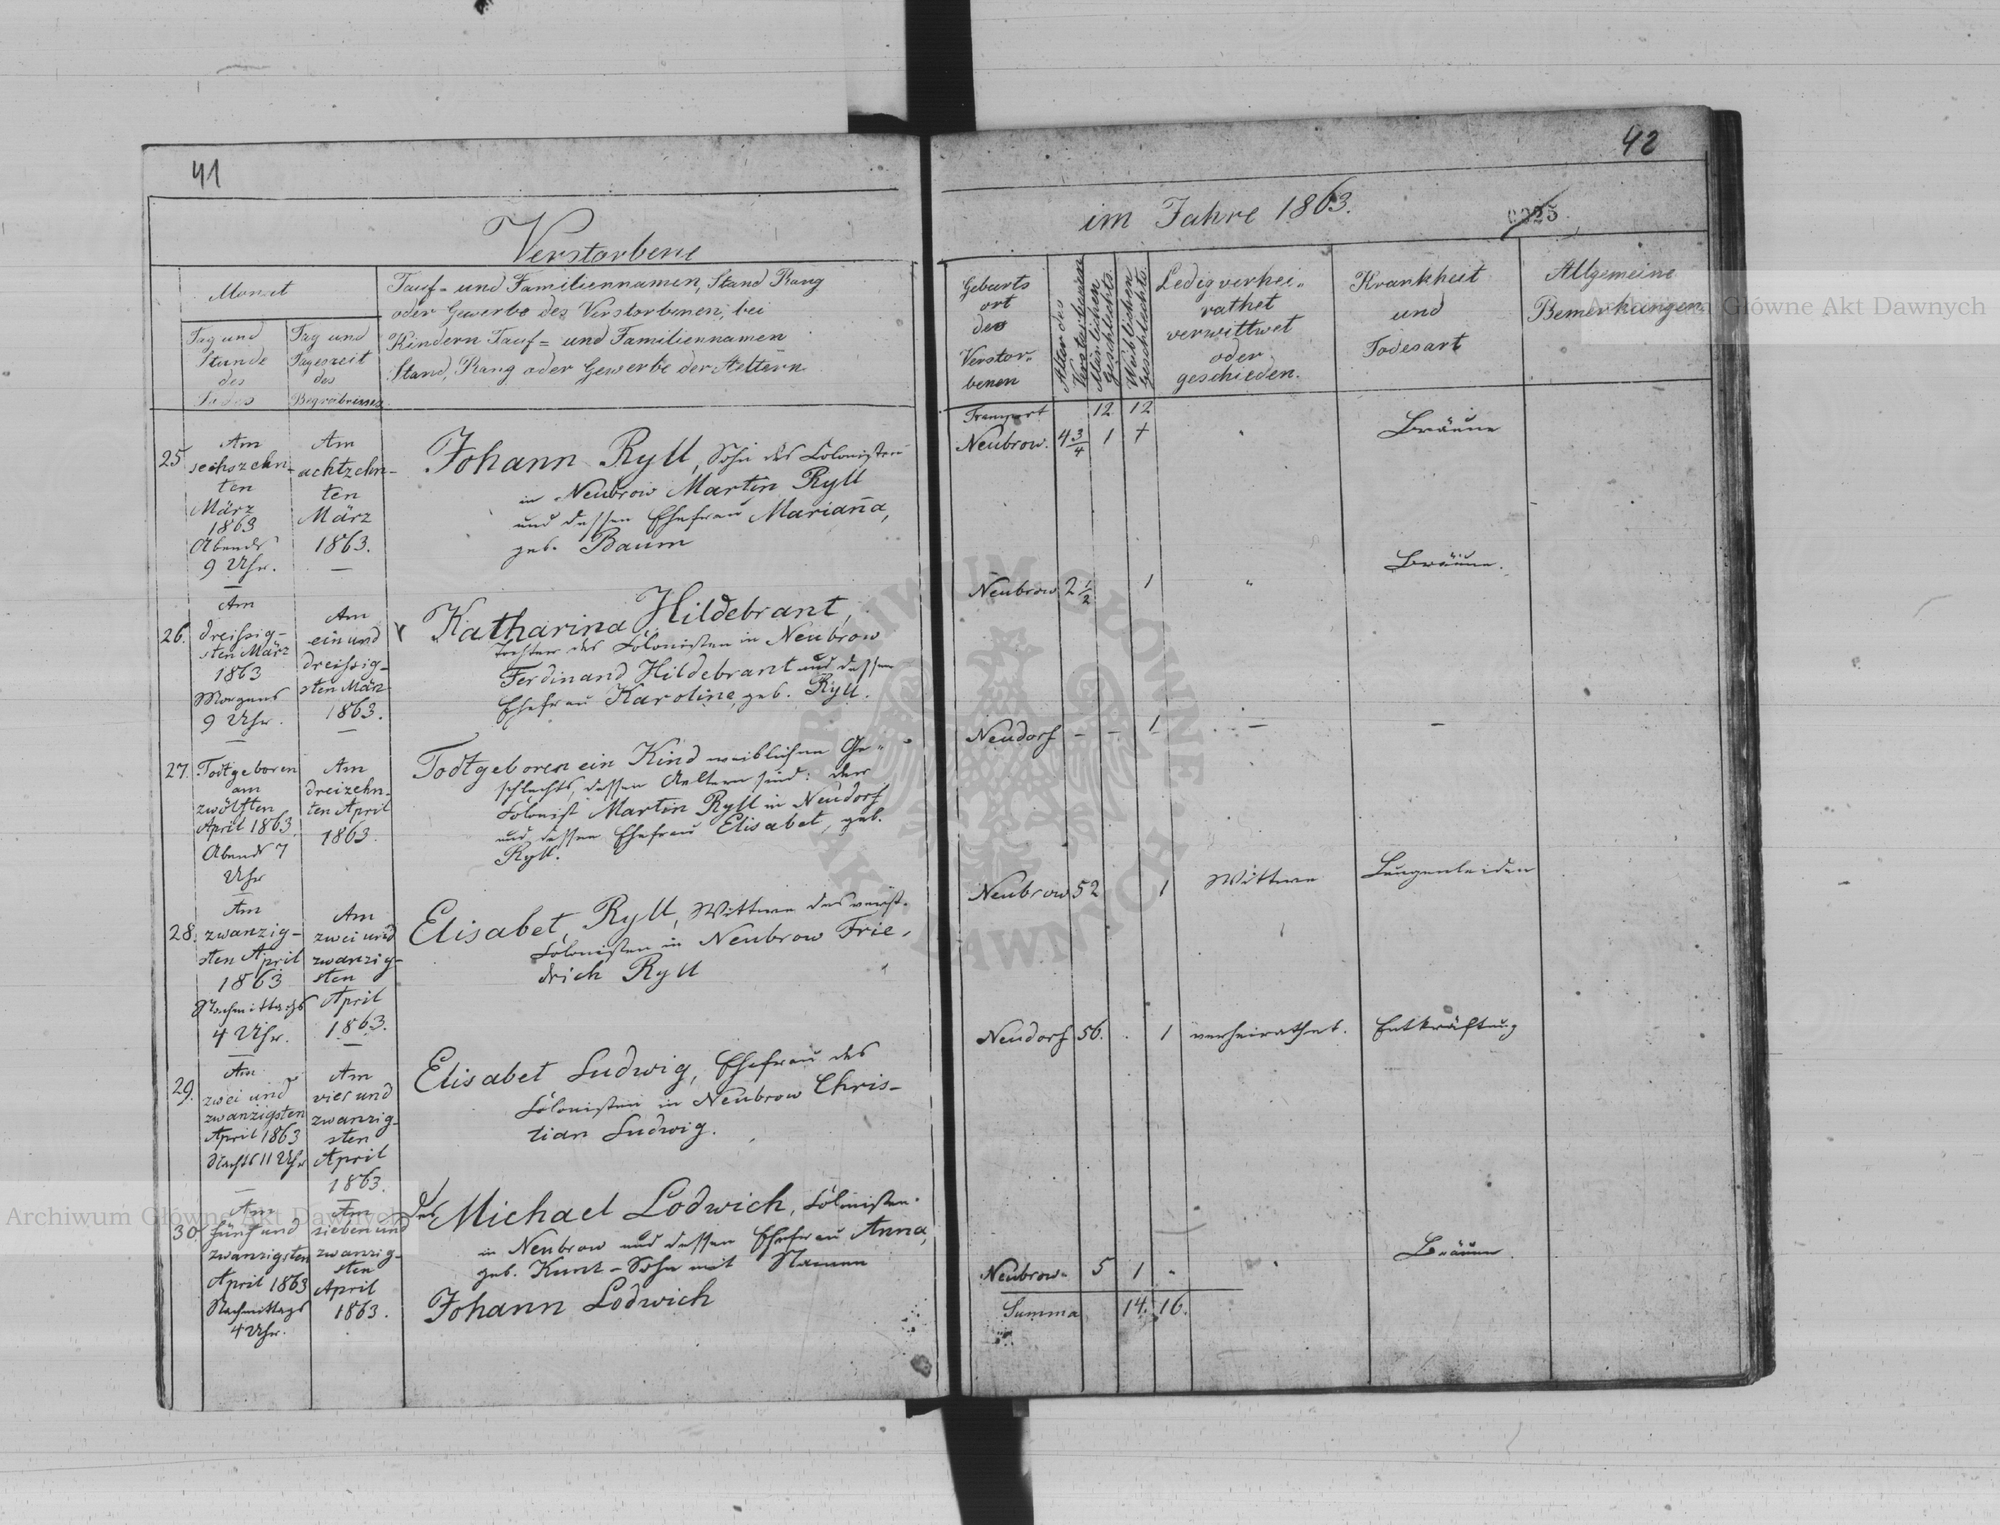 41
Verstorbene
Monat
Tag und
Stunde
des
Todes
Tag und
Tageszeit
des
Begräbnisses
Tauf- und Familiennamen, Stand Rang
oder Gewerbe des Verstorbenen, bei
Kindern Tauf- und Familiennamen
Stand, Rang oder Gewerbe der Aeltern
25.
Am
sechszehn-
ten
März
1863
Abends
9 Uhr.
Am
achtzehn-
ten
März
1863.
Johann Ryll, Sohn des Colonisten
in Neubrow Martin Ryll
und dessen Ehefrau Mariana,
geb. Baum
26.
Am
dreissig-
sten März
1863
Morgens
9 Uhr.
Am
ein und
dreissig-
sten März
1863.
Katharina Hildebrant,
Tochter des Colonisten in Neubrow
Ferdinand Hildebrant und dessen
Ehefrau Karoline, geb. Ryll.
27.
Todtgeboren
am
zwölften
April 1863.
Abends 7
Uhr
Am
dreizehn-
ten April
1863.
Todtgeboren ein Kind weiblichen Ge-
schlechts, dessen Aeltern sind: der
Colonist Martin Ryll in Neudorf
und dessen Ehefrau Elisabet, geb.
Ryll.
28.
Am
zwanzig-
sten April
1863
Nachmittags
4 Uhr.
Am
zwei und
zwanzig-
sten
April
1863.
Elisabet, Ryll, Wittwe des verst.
Colonisten in Neubrow Frie-
drich Ryll
29.
Am
zwei und
zwanzigsten
April 1863
Nachts 11 Uhr
Am
vier und
zwanzig-
sten
April
1863.
Elisabet Ludwig, Ehefrau des
Colonisten in Neubrow Chris-
tian Ludwig.
30.
Am
fünf und
zwanzigsten
April 1863
Nachmittags
4 Uhr.
Am
sieben und
zwanzig-
sten
April
1863.
Des Michael Lodwich, Colonisten
in Neubrow und dessen Ehefrau Anna,
geb. Kunt - Sohn mit Namen
Johann Lodwich
42
im Jahre 1863.
Geburts
ort
des
Verstor-
benen
Alter des
Verstorbenen
Männlichen
Geschlechts.
Weiblichen
Geschlechts.
Ledig verhei-
rathet
verwittwet
oder
geschieden.
Krankheit
und
Todesart
Allgemeine
Bemerkungen
Transport 12 12
Neubrow. 4 3/4 1 + Bräune
Neubrow 2 1/2 1 " Bräune.
Neudorf - - 1 - -
Neubrow 52 1 Wittwe Lungenleiden
Neudorf 56. . 1 verheirathet. Entkräftung
Neubrow 5 1 - Bräune
Summa 14. 16.
Archiwum Główne Akt Dawnych
Archiwum Główne Akt Dawnych
ARCHIWUM GŁÓWNE AKT DAWNYCH